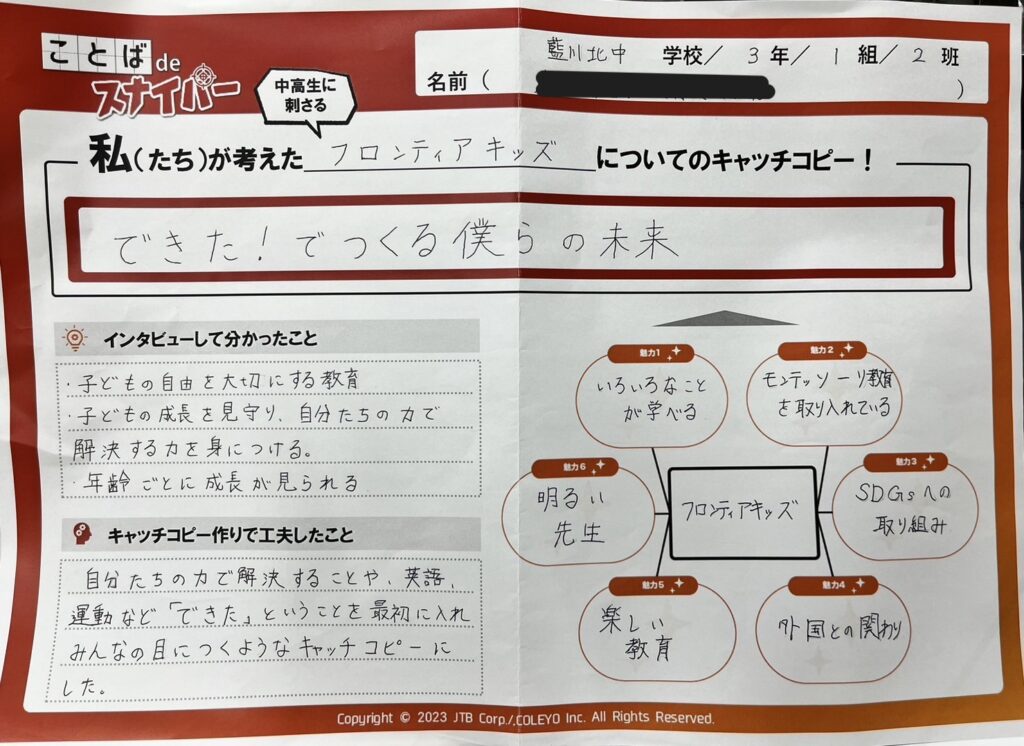 ことば de
スナイパー
中高生に
刺さる
藍川北中 学校／ 3 年／ 1 組／ 2 班
名前（ ）
私（たち）が考えた フロンティアキッズ についてのキャッチコピー！
できた！でつくる僕らの未来
インタビューして分かったこと
・子どもの自由を大切にする教育
・子どもの成長を見守り、自分たちの力で
解決する力を身につける。
・年齢ごとに成長が見られる
キャッチコピー作りで工夫したこと
自分たちの力で解決することや、英語、
運動など「できた」ということを最初に入れ
みんなの目につくようなキャッチコピーに
した。
魅力1
いろいろなこと
が学べる
魅力2
モンテッソーリ教育
を取り入れている
魅力6
明るい
先生
フロンティアキッズ
魅力3
SDGsへの
取り組み
魅力5
楽しい
教育
魅力4
外国との関わり
Copyright © 2023 JTB Corp./COLEYO Inc. All Rights Reserved.